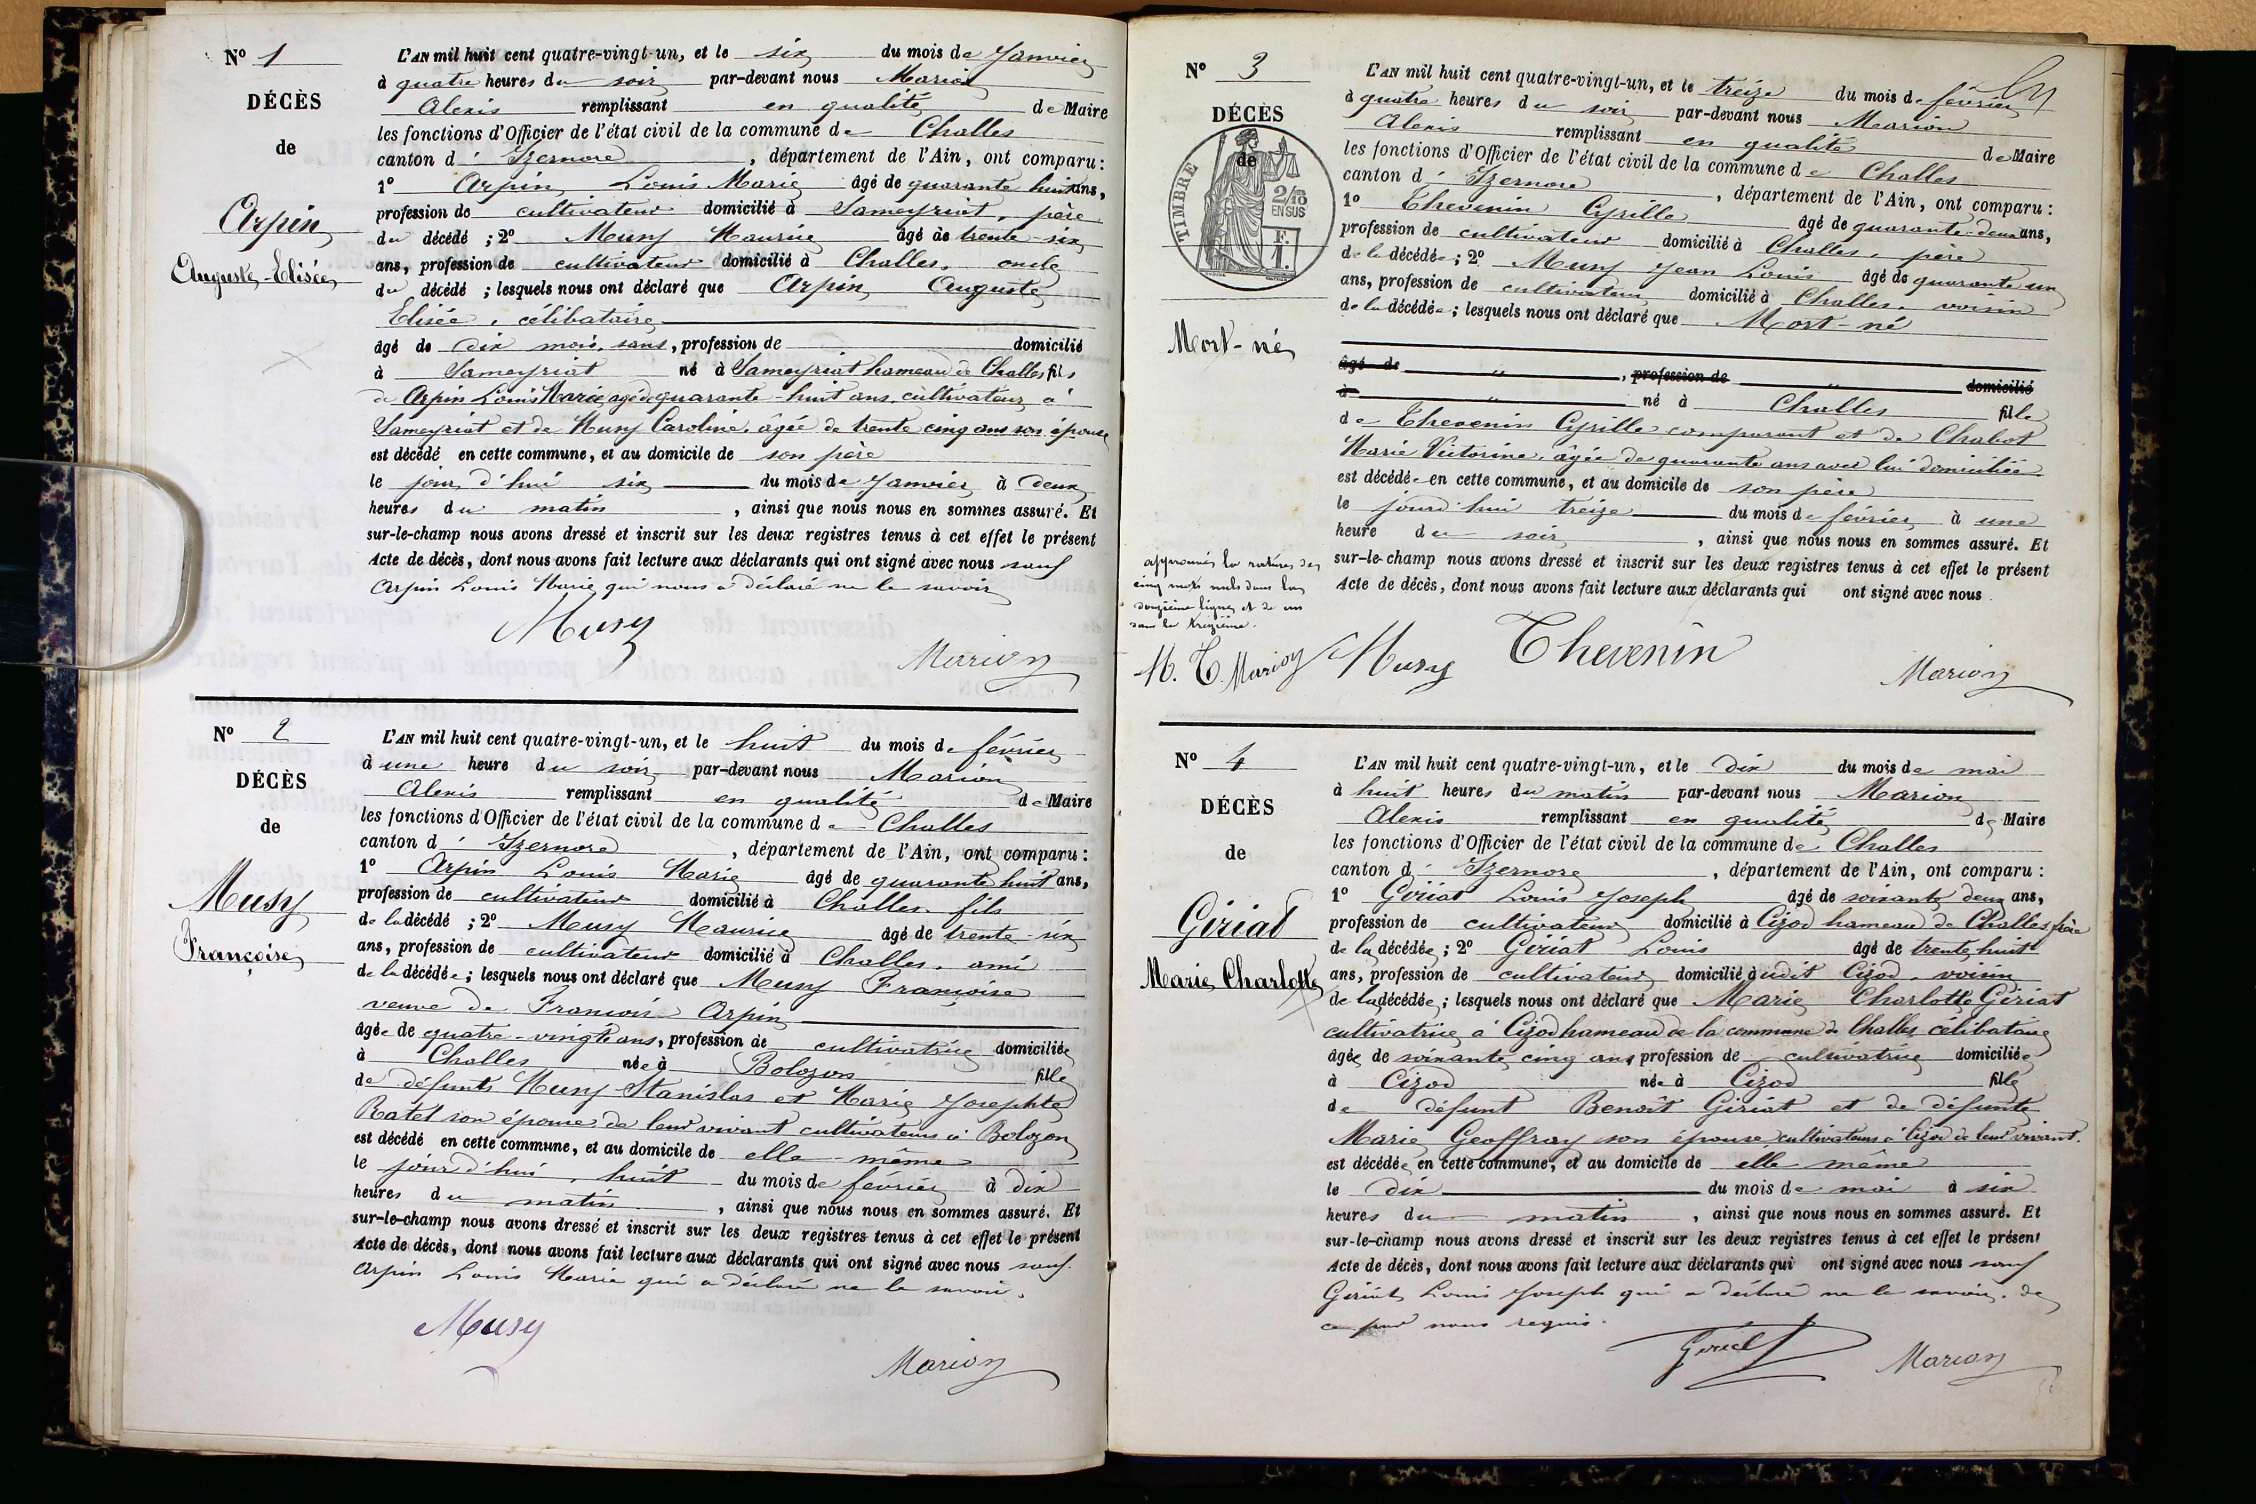 N° 1
DÉCÈS
de
Arpin
Auguste-Elisée
L'AN mil huit cent quatre-vingt-un, et le six du mois de Janvier
à quatre heures du soir par-devant nous Marion
Alexis remplissant en qualité de Maire
les fonctions d'Officier de l'état civil de la commune de Challes
canton d' Izernore, département de l'Ain, ont comparu :
1° Arpin Louis Marie âgé de quarante huit ans,
profession de cultivateur domicilié à Sameyriat, père
du décédé ; 2° Musy Maurice âgé de trente-six
ans, profession de cultivateur domicilié à Challes, oncle
du décédé ; lesquels nous ont déclaré que Arpin Auguste
Elisée, célibataire
âgé de dix mois, sans, profession de domicilié
à Sameyriat né à Sameyriat hameau de Challes fils
de Arpin Louis Marie, âgé de quarante-huit ans, cultivateur à
Sameyriat et de Musy Caroline, âgée de trente cinq ans son épouse
est décédé en cette commune, et au domicile de son père
le jour d'hui six du mois de Janvier à deux
heures du matin, ainsi que nous nous en sommes assuré. Et
sur-le-champ nous avons dressé et inscrit sur les deux registres tenus à cet effet le présent
Acte de décès, dont nous avons fait lecture aux déclarants qui ont signé avec nous sauf
Arpin Louis Marie qui nous a déclaré ne le savoir
Musy
Marion
N° 2
DÉCÈS
de
Musy
Françoise
L'AN mil huit cent quatre-vingt-un, et le huit du mois de février
à une heure du soir par-devant nous Marion
Alexis remplissant en qualité de Maire
les fonctions d'Officier de l'état civil de la commune de Challes
canton d' Izernore, département de l'Ain, ont comparu :
1° Arpin Louis Marie âgé de quarante huit ans,
profession de cultivateur domicilié à Challes, fils
de la décédé ; 2° Musy Maurice âgé de trente-six
ans, profession de cultivateur domicilié à Challes, ami
de la décédée ; lesquels nous ont déclaré que Musy Françoise
veuve de François Arpin
âgée de quatre-vingts ans, profession de cultivatrice domiciliée
à Challes née à Bolozon fille
de défunts Musy Stanislas et Marie Josephte
Ratel son épouse de leur vivant cultivateurs à Bolozon
est décédé en cette commune, et au domicile de elle-même
le jour d'hui, huit du mois de février à dix
heures du matin, ainsi que nous nous en sommes assuré. Et
sur-le-champ nous avons dressé et inscrit sur les deux registres tenus à cet effet le présent
Acte de décès, dont nous avons fait lecture aux déclarants qui ont signé avec nous sauf
Arpin Louis Marie qui a déclaré ne le savoir.
Musy
Marion
N° 3
DÉCÈS
de
TIMBRE
2/10
EN SUS
F.
1.
Mort-né
L'AN mil huit cent quatre-vingt-un, et le treize du mois de février
à quatre heures du soir par-devant nous Marion
Alexis remplissant en qualité de Maire
les fonctions d'Officier de l'état civil de la commune de Challes
canton d' Izernore, département de l'Ain, ont comparu :
1° Thevenin Cyrille âgé de quarante-deux ans,
profession de cultivateur domicilié à Challes, père
de la décédée ; 2° Musy Jean Louis âgé de quarante un
ans, profession de cultivateur domicilié à Challes, voisin
de la décédée ; lesquels nous ont déclaré que Mort-né
âgé de " , profession de " domicilié
à " né à Challes fille
de Thevenin Cyrille comparant et de Chabot
Marie Victorine, âgée de quarante ans avec lui domiciliée
est décédée en cette commune, et au domicile de son père
le jourd'hui treize du mois de février à une
heure du soir, ainsi que nous nous en sommes assuré. Et
sur-le-champ nous avons dressé et inscrit sur les deux registres tenus à cet effet le présent
Acte de décès, dont nous avons fait lecture aux déclarants qui ont signé avec nous.
approuvés la rature des
cinq mots nuls dans la
douzième ligne et de un
dans la treizième.
M. T. Marion
Musy
Thevenin
Marion
N° 4
DÉCÈS
de
Giriat
Marie Charlotte
L'AN mil huit cent quatre-vingt-un, et le dix du mois de mai
à huit heures du matin par-devant nous Marion
Alexis remplissant en qualité de Maire
les fonctions d'Officier de l'état civil de la commune de Challes
canton d' Izernore, département de l'Ain, ont comparu :
1° Giriat Louis Joseph âgé de soixante deux ans,
profession de cultivateur domicilié à Cizod hameau de Challes, frère
de la décédée ; 2° Giriat Louis âgé de trente huit
ans, profession de cultivateur domicilié à udit Cizod, voisin
de la décédée ; lesquels nous ont déclaré que Marie Charlotte Giriat
cultivatrice à Cizod hameau de la commune de Challes, célibataire
âgée de soixante cinq ans, profession de cultivatrice domiciliée
à Cizod née à Cizod fille
de défunt Benoît Giriat et de défunte
Marie Geoffray son épouse cultivateurs à Cizod de leur vivant.
est décédée en cette commune, et au domicile de elle même
le dix du mois de mai à six
heures du matin, ainsi que nous nous en sommes assuré. Et
sur-le-champ nous avons dressé et inscrit sur les deux registres tenus à cet effet le présent
Acte de décès, dont nous avons fait lecture aux déclarants qui ont signé avec nous sauf
Giriat Louis Joseph qui a déclaré ne le savoir. de
ce par nous requis.
Giriat
Marion